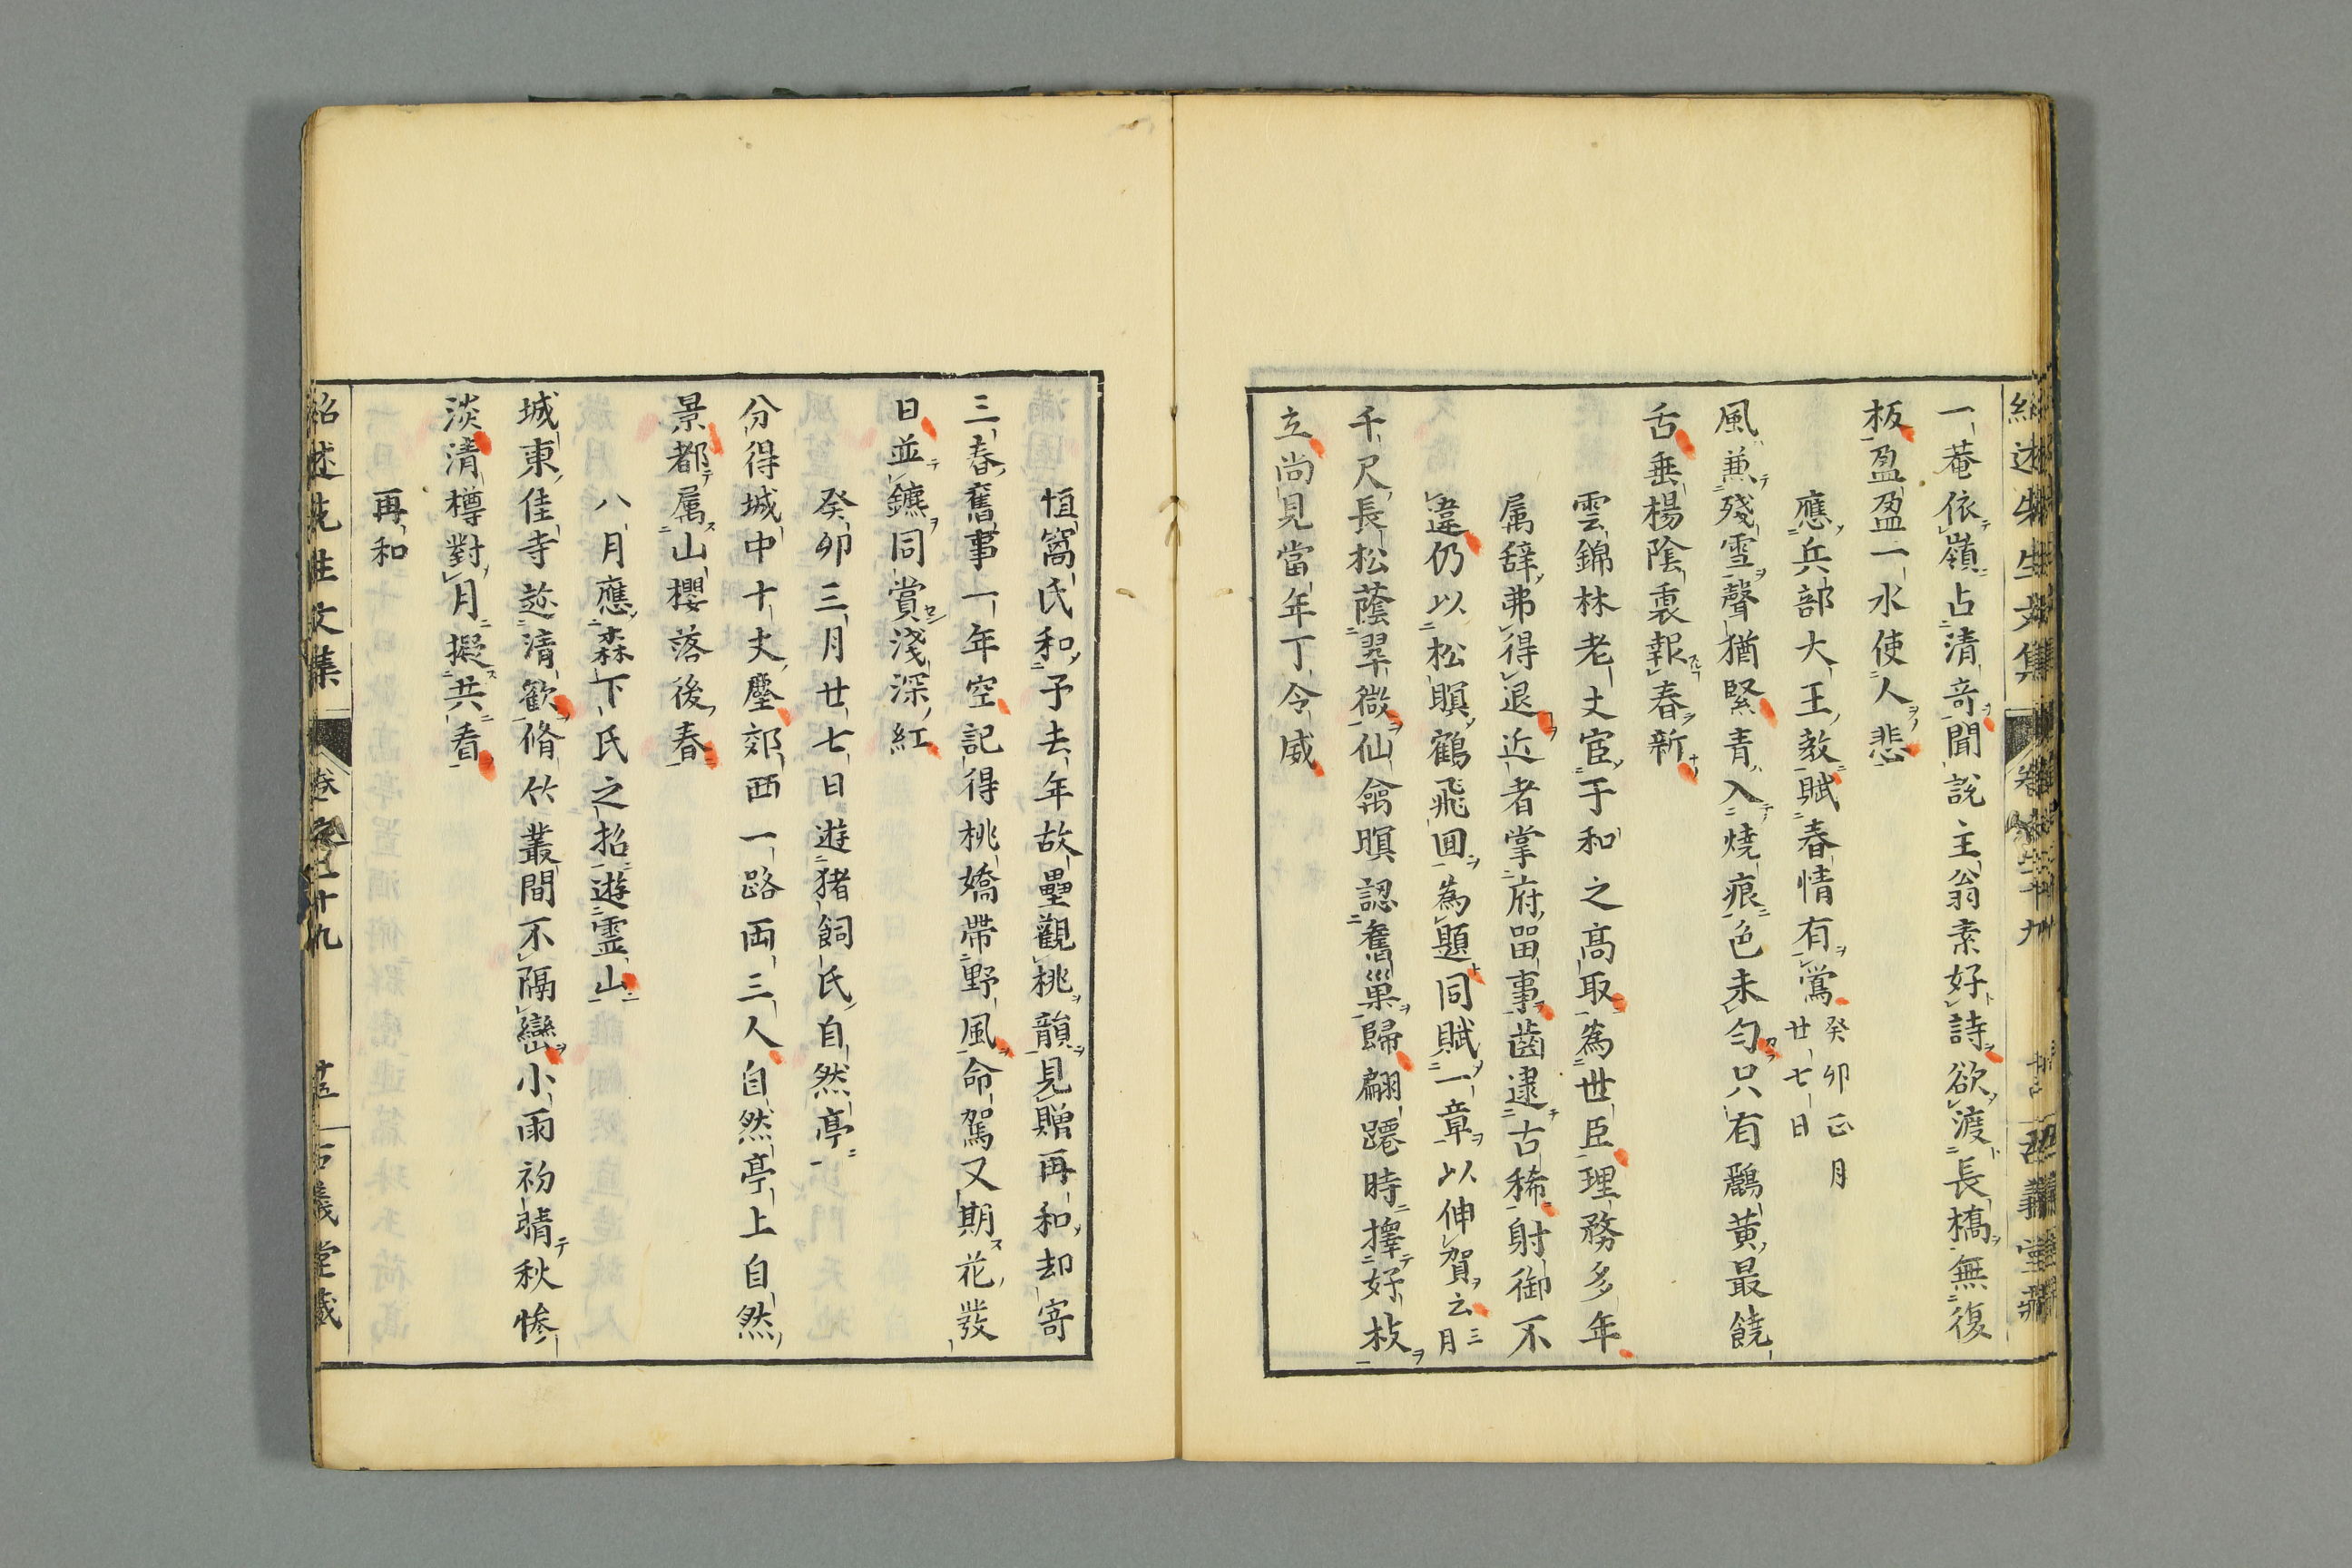 一菴依嶺占清竒聞說主翁素好詩欲渡長橋無復
板盈盈一水使人悲
應兵部大王教賦春情有鶯癸卯正月廿七日
風兼殘雪聲猶緊青入燒痕色未勻只有鸝黃最饒
舌垂楊陰裏報春新
雲錦林老丈宦于和之髙取為世臣理務多年
属辞弗得退近者掌府畱事齒逮古稀射御不
違仍以松瞑鶴飛囬為題同賦一章以伸賀云三月
千尺長松蔭翠微仙禽暝認舊巢歸翩躚時擇好枝
立尚見當年丁令威
恒窩氏和予去年故壘觀桃韻見贈再和却寄
三春舊事一年空記得桃嬌帶野風命駕又期花發
日並鑣同賞淺深紅
癸卯三月廿七日遊猪飼氏自然亭
分得城中十丈塵郊西一路両三人自然亭上自然
景都属山櫻落後春
八月應森下氏之招遊霊山
城東佳寺趂清歡脩竹叢間不隔巒小雨初晴秋慘
淡清樽對月擬共看
再和
紹述先生文集 卷之二十九 十五 古義堂藏